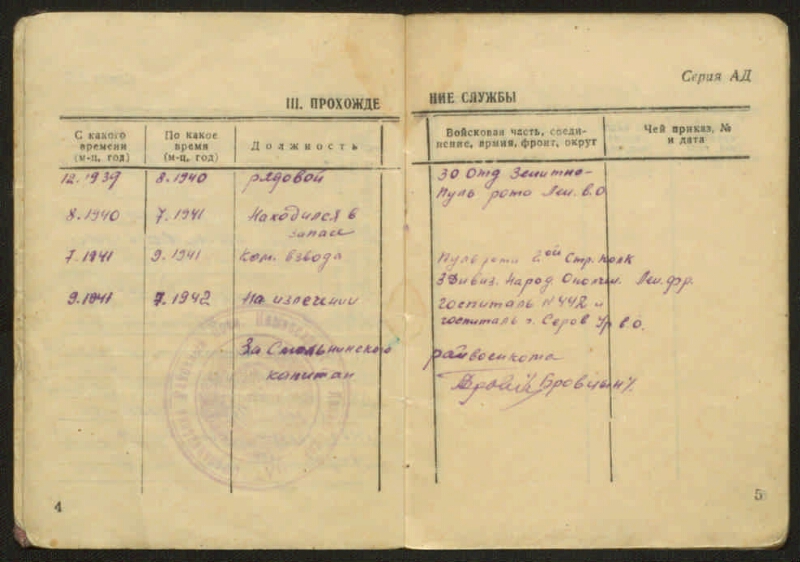 Серия АД
III. ПРОХОЖДЕ НИЕ СЛУЖБЫ
С какого времени (м-ц, год) По какое время (м-ц, год) Должность Войсковая часть, соеди-нение, армия, фронт, округ Чей приказ, № и дата
12.1939 8.1940 рядовой 30 Отд Зенитно-
Пуль рота Лен. В.О
8.1940 7.1941 Находился в
запасе
7.1941 9.1941 Ком. взвода Пуль рота 2ой Стр. полк
3 Дивиз. Народ. Ополчен. Лен. фр.
9.1941 7.1942 На излечении госпиталь N 442 и
госпиталь г. Серов Ур В.О.
За Смольнинского райвоенкома
капитан
4
5